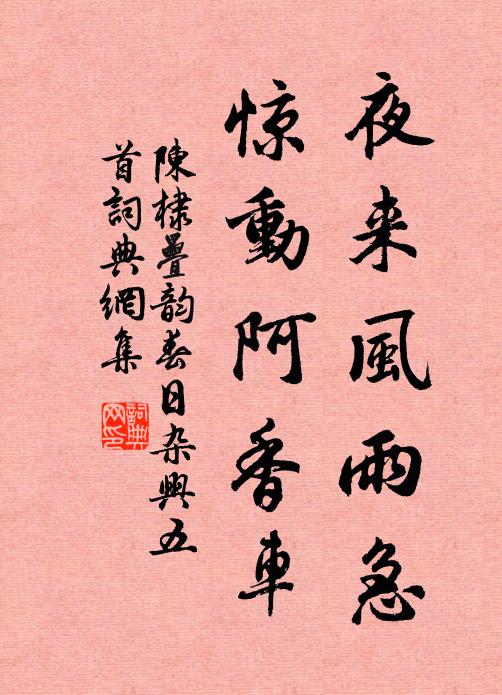 夜来風雨急
惊動阿香車
陳棣疊韵春日杂興五
首詞典網集
詞典
网印